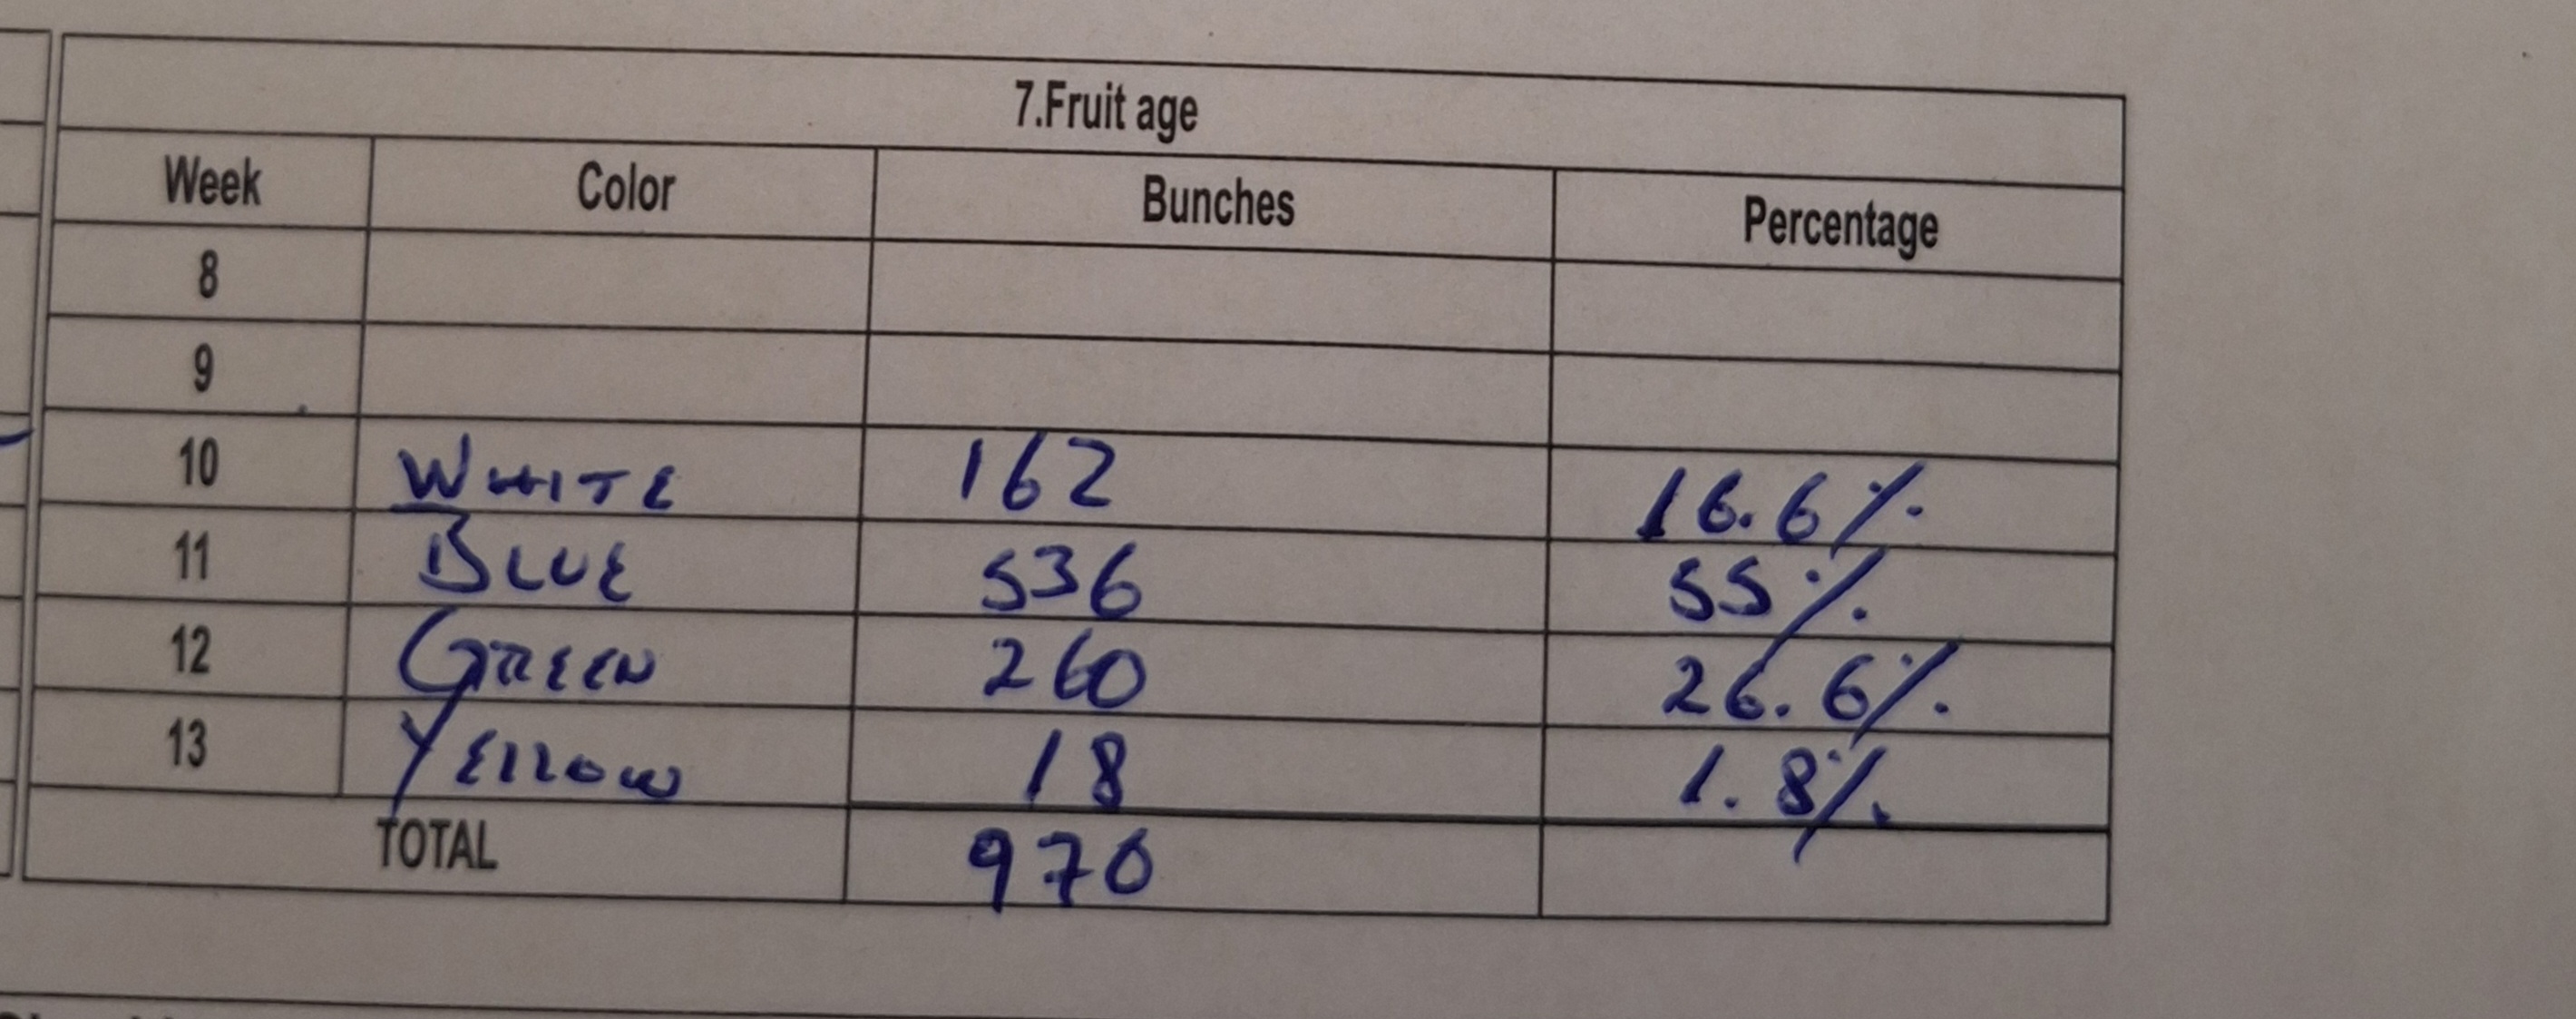 7.Fruit age
Week Color Bunches Percentage
8
9
10 WHITE 162 16.6%
11 BLUE 536 55%
12 GREEN 260 26.6%
13 YEllow 18 1.8%
TOTAL 970